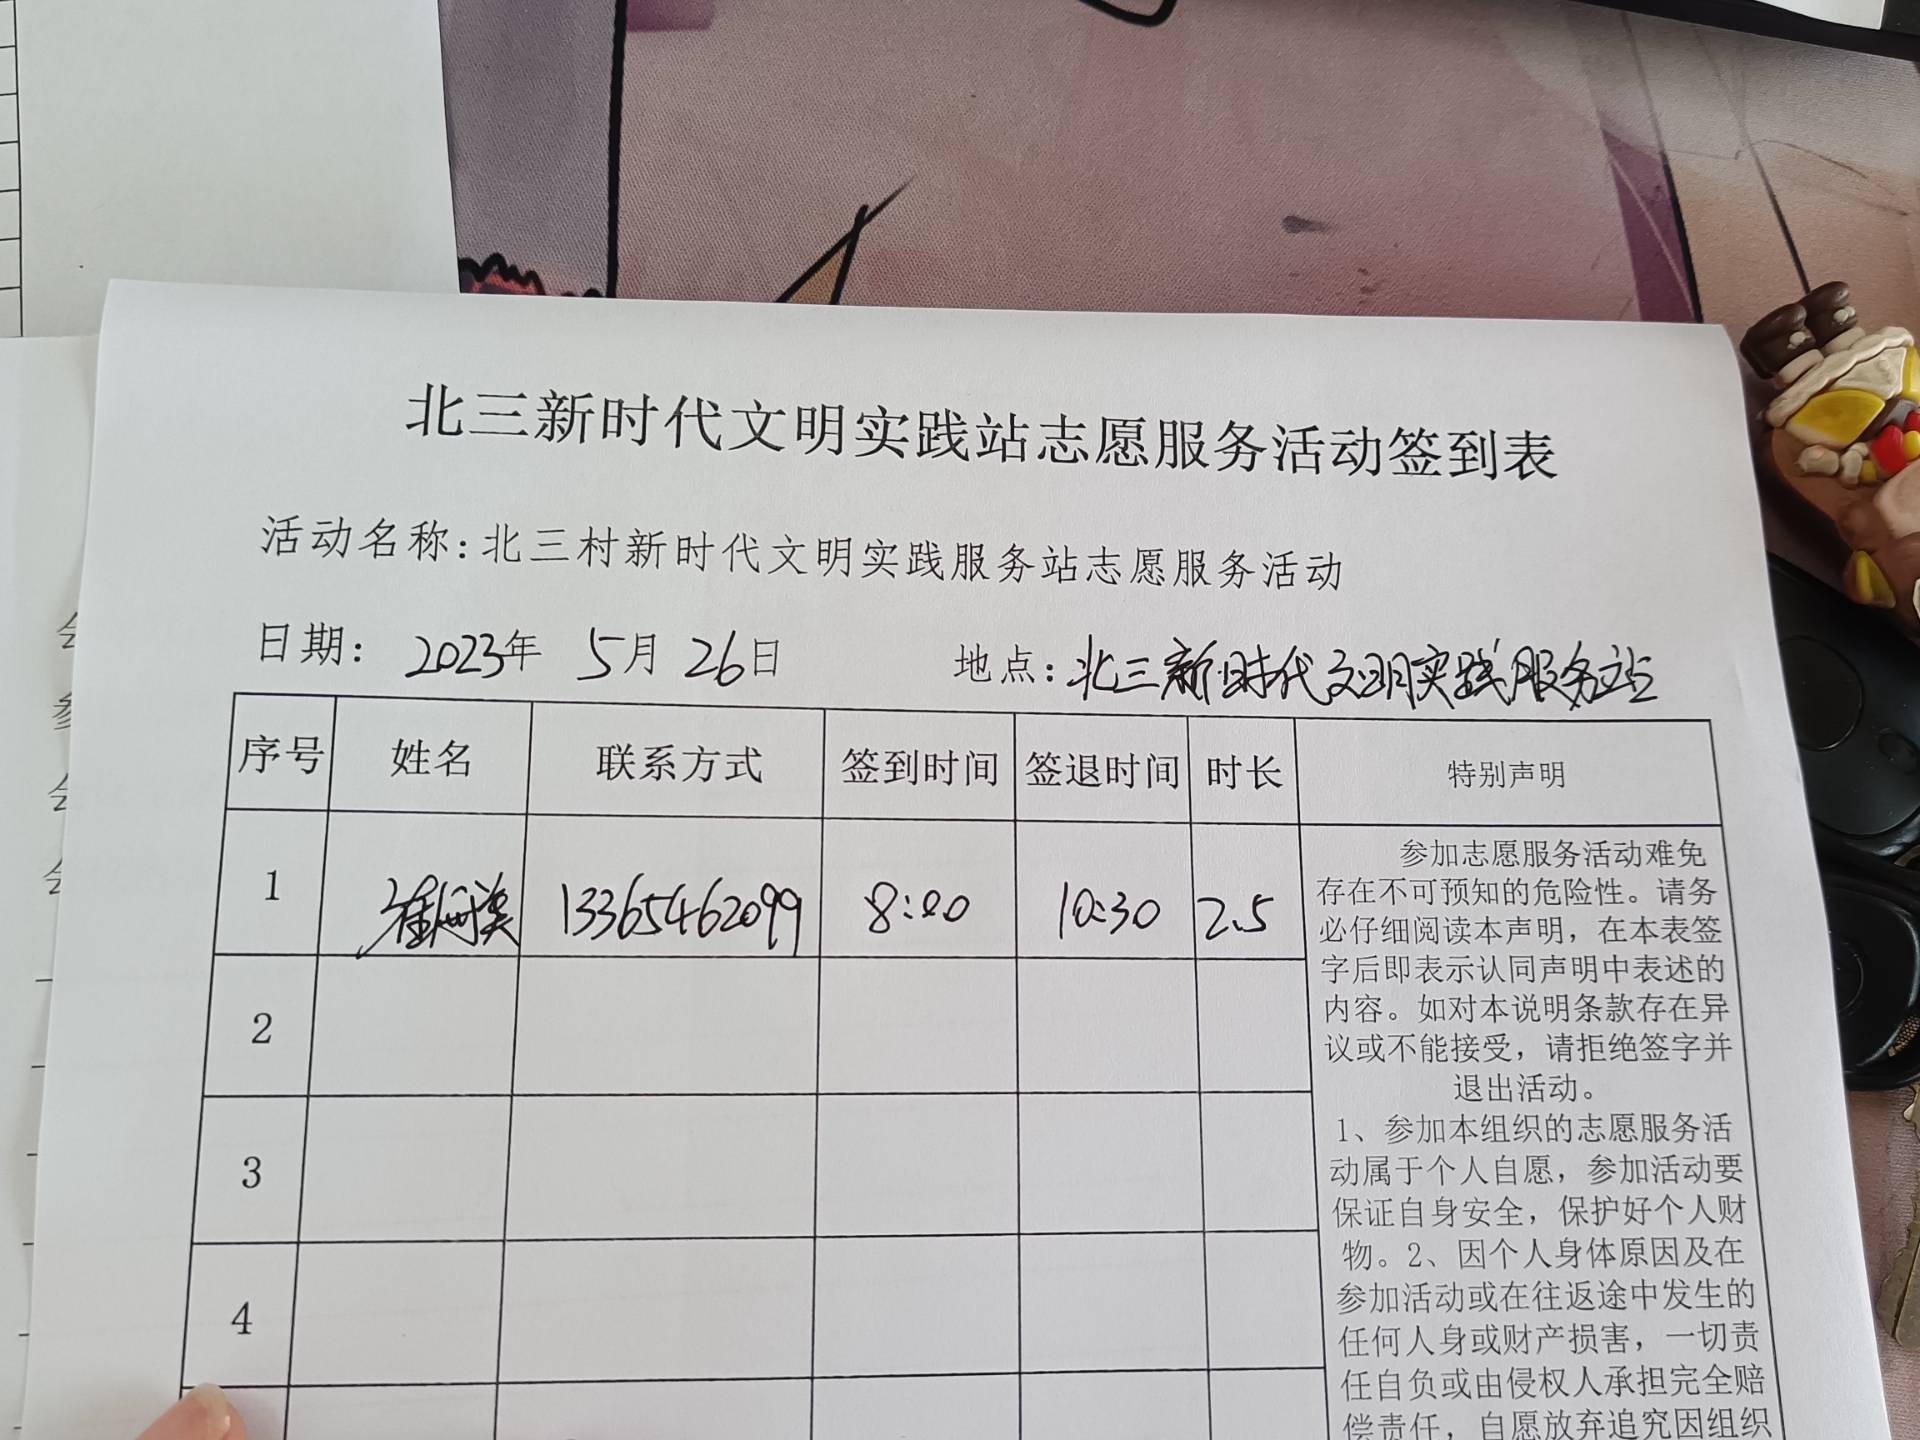 北三新时代文明实践站志愿服务活动签到表
活动名称:北三村新时代文明实践服务站志愿服务活动
日期: 2023年 5月 26日 地点:北三新时代文明实践服务站
序号 姓名 联系方式 签到时间 签退时间 时长 特别声明
1 崔 13365462099 8:00 10:30 2.5
2
3
4
参加志愿服务活动难免
存在不可预知的危险性。请务
必仔细阅读本声明，在本表签
字后即表示认同声明中表述的
内容。如对本说明条款存在异
议或不能接受，请拒绝签字并
退出活动。
1、参加本组织的志愿服务活
动属于个人自愿，参加活动要
保证自身安全，保护好个人财
物。2、因个人身体原因及在
参加活动或在往返途中发生的
任何人身或财产损害，一切责
任自负或由侵权人承担完全赔
偿责任，自愿放弃追究因组织